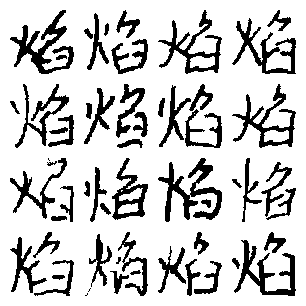 焰焰焰焰
焰焰焰焰
焰焰焰焰
焰焰焰焰